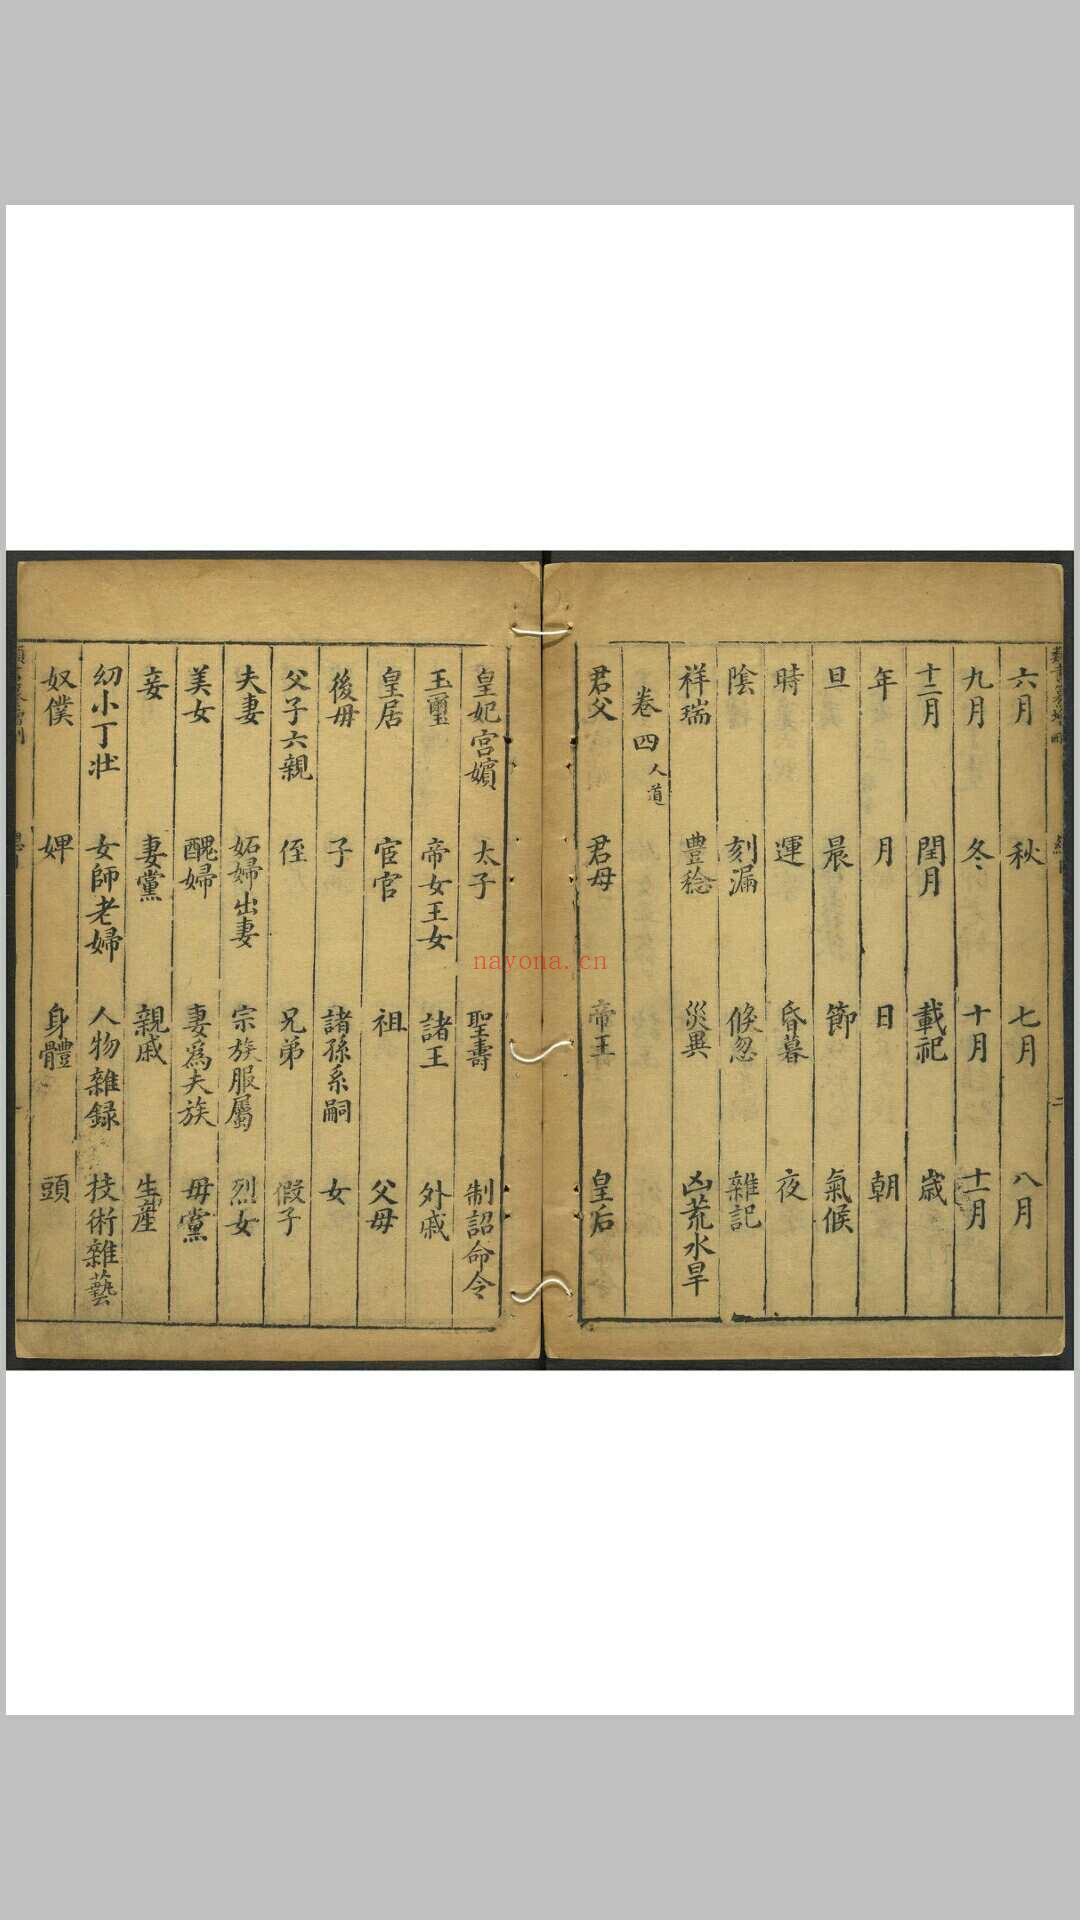 六月 秋 七月 八月
九月 冬 十月 十一月
十二月 閏月 載祀 歳
年 月 日 朝
旦 晨 節 氣候
時 運 昏暮 夜
陰 刻漏 倐忽 雜記
祥瑞 豊稔 災異 凶荒水旱
卷四 人道
君父 君母 帝王 皇后
皇妃宮嬪 太子 聖壽 制詔命令
玉璽 帝女王女 諸王 外戚
皇居 宦官 祖 父母
後母 子 諸孫系嗣 女
父子六親 侄 兄弟 假子
夫妻 妬婦出妻 宗族服屬 烈女
美女 醜婦 妻爲夫族 母黨
妾 妻黨 親戚 生產
幼小丁壯 女師老婦 人物雜録 技術雜藝
奴僕 婢 身體 頭
二
nayona.cn